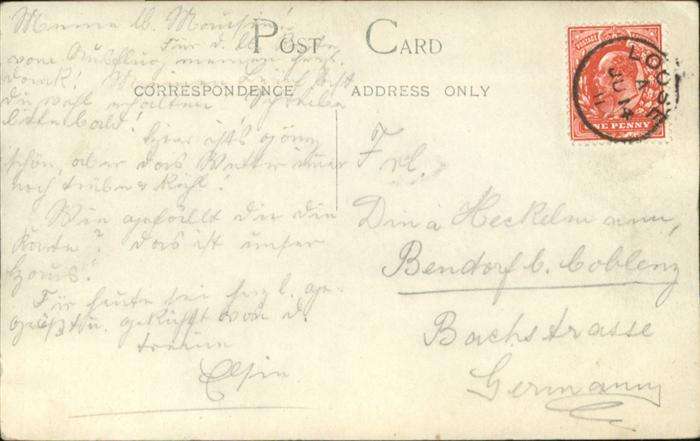 POST CARD
CORRESPONDENCE
ADDRESS ONLY
ONE PENNY
LOOSE
A
JU 14
11
Meine lb.
Für d. lb.
vom Ausflug
dank!
du wohl erhalten
Hier ist's ganz
schön, aber das Wetter immer
noch trübe & kühl!
Wie gefällt dir die
Karte? Das ist unser
Haus!
Für heute sei herzl. ge-
grüßt u. geküßt von d.
treuen
Elsin
Frl.
Dina Heckelmann,
Bendorf b. Coblenz
Bachstrasse
Germany